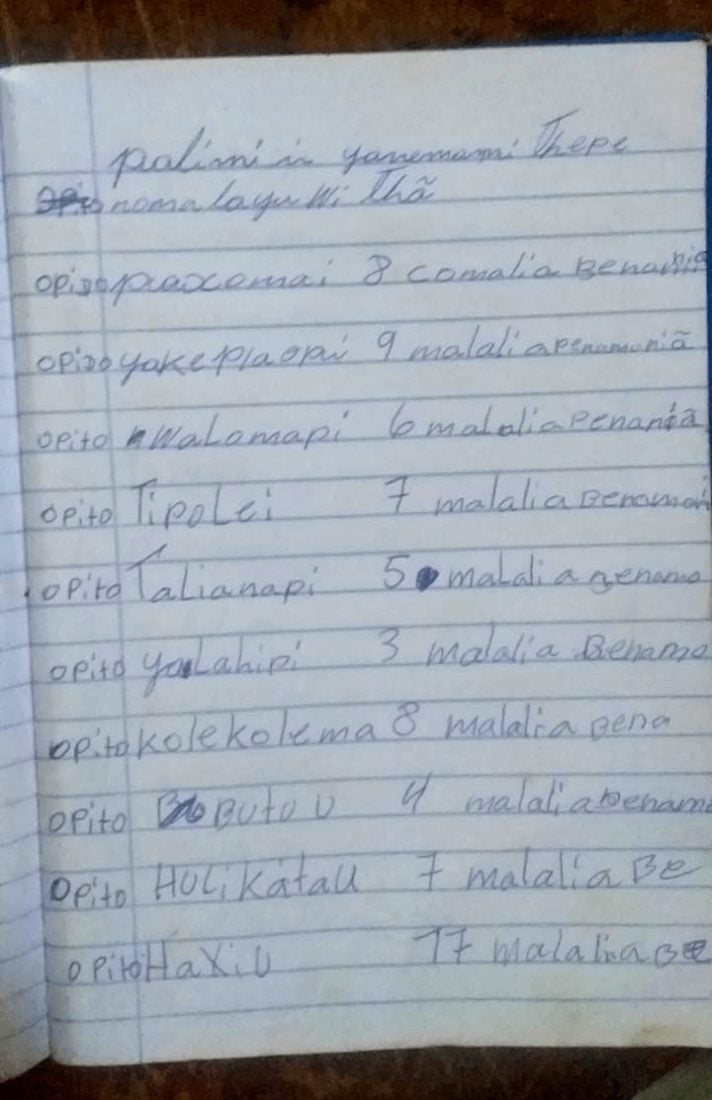 palimi ii yanemami Thepe
nomalayu Wi Thã
opito paxomai 8 comalia Benamia
opito yakeplaopi 9 malaliapenamuniã
opito Walomapi 6 malaliapenaniã
opito Tipolei 7 malaliaBenamai
opito Talianapi 5 malaliaBenama
opito yalahipi 3 malalia Benama
opito Kolekolema 8 malalia Bena
opito BUtoU 4 malaliaBenama
opito HULiKátaU 7 malalia Be
opito HaXiU 17 malalia Be